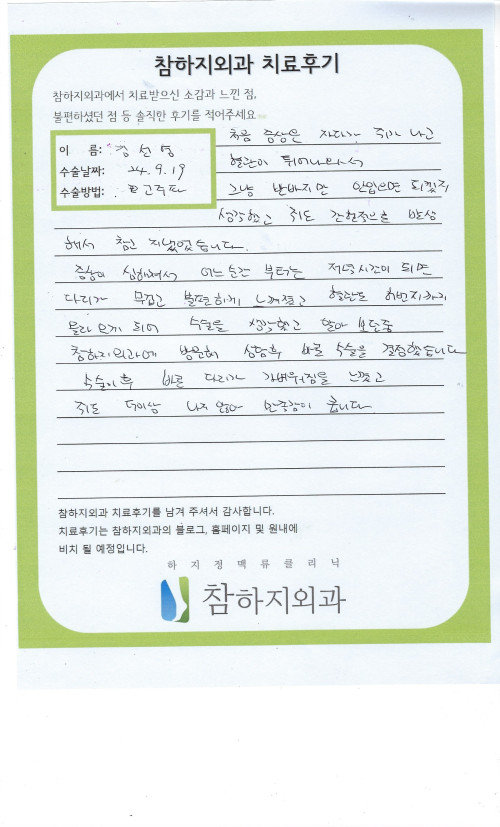 참하지외과 치료후기
참하지외과에서 치료받으신 소감과 느낀 점,
불편하셨던 점 등 솔직한 후기를 적어주세요
이 름: 김선영
수술날짜: 24.9.19
수술방법: 고주파
처음 증상은 자다가 쥐가 나고
혈관이 튀어나와서
그냥 반바지만 안입으면 되겠지
생각했고 쥐도 간헐적으로 발생
해서 참고 지냈었습니다.
증상이 심해져서 어느순간 부터는 저녁시간이 되면
다리가 무겁고 불편하게 느껴졌고 혈관도 허벅지까지
올라 오게 되어 수술을 생각했고 알아 보던중
참하지외과에 방문하여 상담후 바로 수술을 결정했습니다
수술이후 바로 다리가 가벼워짐을 느꼈고
쥐도 더이상 나지 않아 만족감이 큽니다
참하지외과 치료후기를 남겨 주셔서 감사합니다.
치료후기는 참하지외과의 블로그, 홈페이지 및 원내에
비치 될 예정입니다.
하지정맥류클리닉
참하지외과